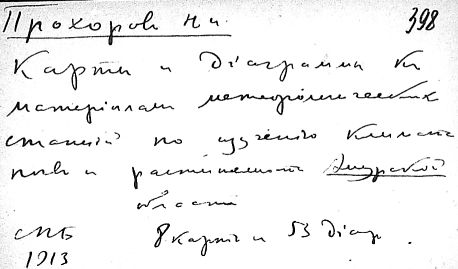 Прохоров Н и. 398
Карты и діаграммы къ
матеріалам метеорологических
станцій по изученію климата
почв и растительности Амурской
области
СПБ 8 карт и 53 діагр.
1913